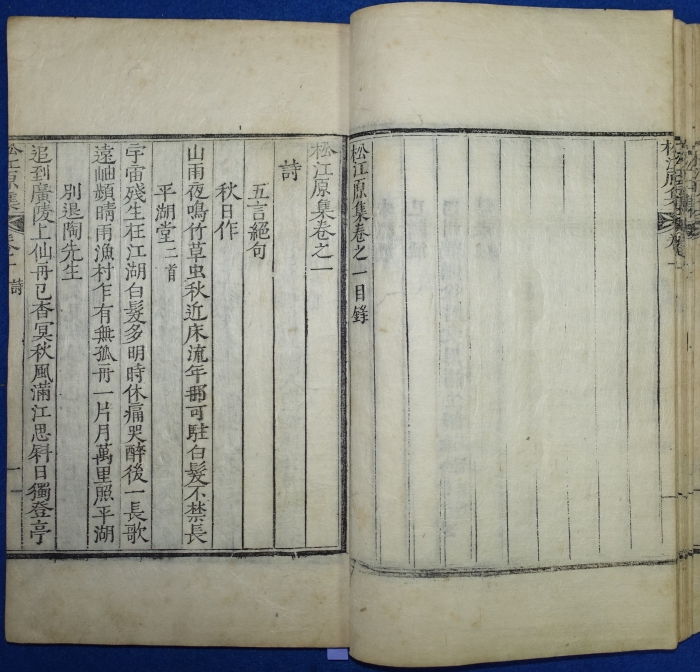 松江原集卷之一目錄
松江原集卷之一
詩
五言絕句
秋日作
山雨夜鳴竹草虫秋近床流年那可駐白髮不禁長
平湖堂二首
宇宙殘生在江湖白髮多明時休痛哭醉後一長歌
遠岫頻晴雨漁村乍有無孤舟一片月萬里照平湖
別退陶先生
追到廣陵上仙舟已杳冥秋風滿江思斜日獨登亭
松江原集 卷一 詩 一